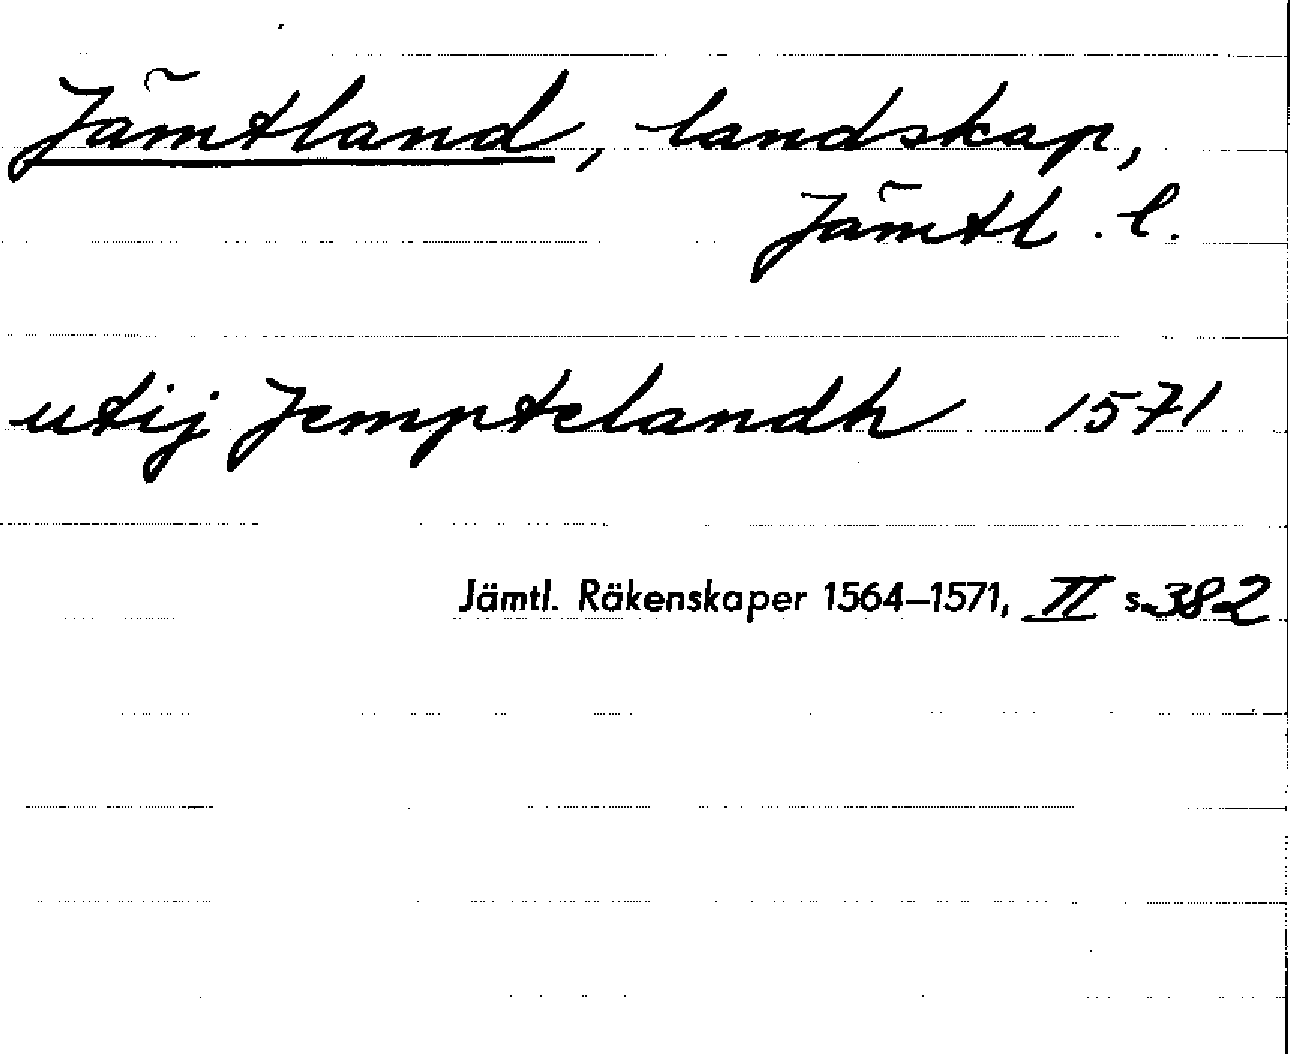 Jämtland, landskap,
Jämtl. l.
utij Jemptelandh 1571
Jämtl. Räkenskaper 1564–1571, II s. 382